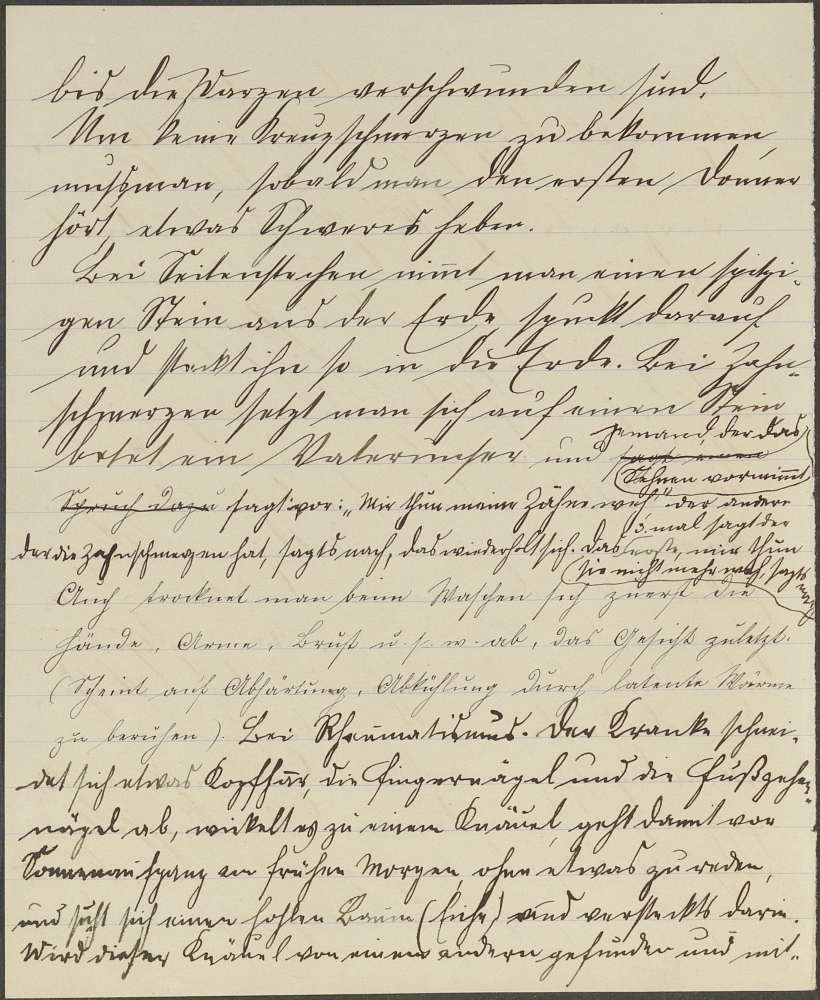 bis die Warzen verschwunden sind.
Um keine Kreuzschmerzen zu bekommen,
mussman, sobald man den ersten Donner
hört, etwas Schweres heben.
Bei Seitenstechen nimt man einen spitzi-
gen Stein aus der Erde, spuckt darauf
und steckt ihn so in die Erde. Bei Zahn-
schmerzen setzt man sich auf einen Stein
betet ein Vaterunser und sagt einen
jemand, der das
Sehnen vornimmt,
Spruch dazu sagt vor: „Mir thun meine Zähne weh" der andere
der die Zahnschmerzen hat, sagts nach, das wiederholt sich. Das
3. mal sagt der
erste, mir thun
sie nicht mehr weh, sagts
Auch trocknet man beim Waschen sich zuerst die
Hände, Arme, Brust u. s. w. ab, das Gesicht zuletzt.
(Scheint auf Abhärtung, Abkühlung durch latente Wärme
zu beruhen). Bei Rheumatismus. Der Kranke schnei-
det sich etwas Kopfhar, die Fingernägel und die Fußzehen-
nägel ab, wickelt es zu einem Knäuel, geht damit vor
Sonnenaufgang am frühen Morgen, ohne etwas zu reden,
und sucht sich einen hohlen Baum (Eiche) und versteckts darin.
Wird dieser Knäuel von einem andern gefunden und mit-